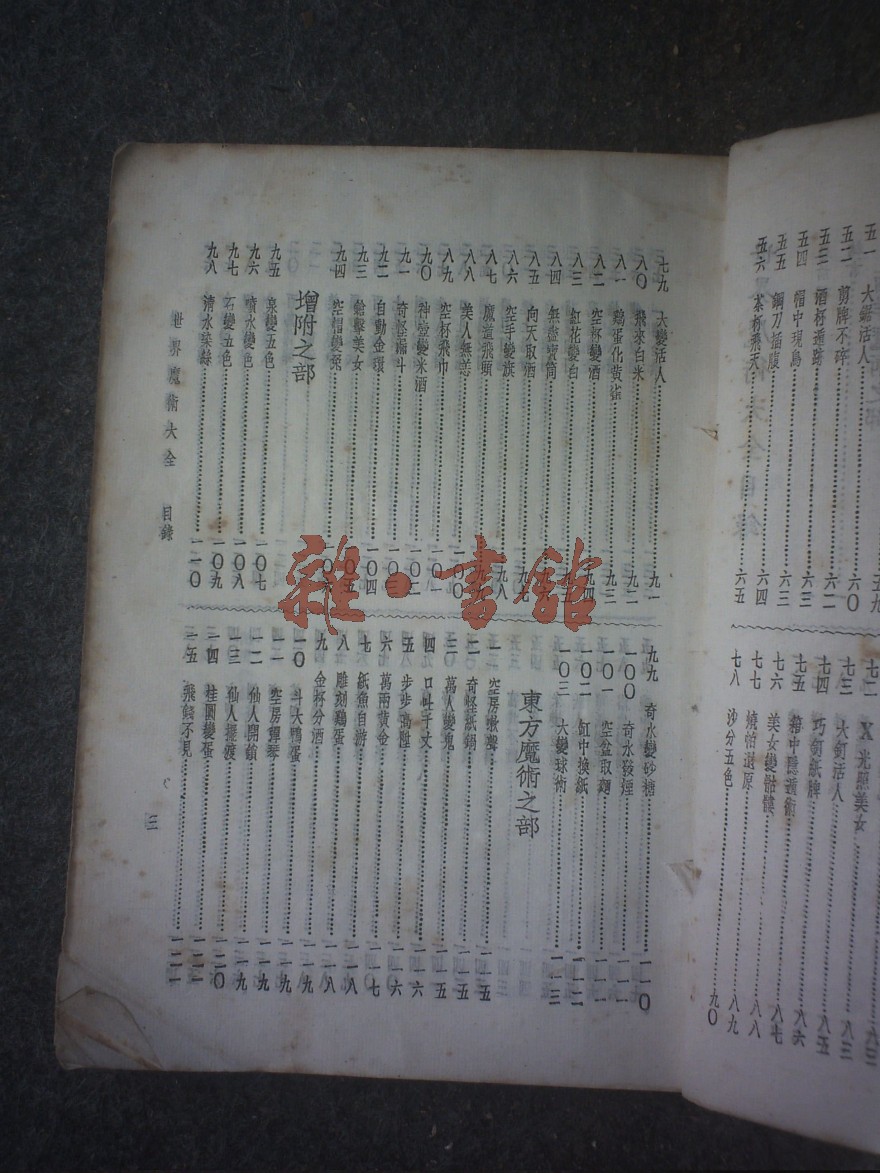 五一 大鋸活人 五九
五二 剪牌不碎 六〇
五三 酒杯遁跡 六二
五四 帽中現鳥 六三
五五 鋼刀插腹 六四
五六 茶杯飛天 六五
七二 X光照美女
七三 大釘活人 八三
七四 巧釘紙牌 八五
七五 箱中隱遁術 八六
七六 美女變骷髏 八七
七七 燒帕還原 八八
七八 沙分五色 八九
九〇
七九 大變活人 九一
八〇 飛來白米 九二
八一 鷄蛋化黃雀 九三
八二 空杯變酒 九四
八三 紅花變白
八四 無盡寶筒
八五 向天取酒 九七
八六 空手變旗 九八
八七 魔道飛頭 九九
八八 美人無恙 一〇〇
八九 空杯飛巾 一〇一
九〇 神壺變米酒 一〇二
九一 奇怪漏斗
九二 自動金環 一〇四
九三 鎗擊美女 一〇五
九四 空帽變兔 一〇六
增附之部
九五 泉變五色 一〇七
九六 噴水變色 一〇八
九七 石變五色 一〇九
九八 清水染絲 一一〇
九九 奇水變砂糖 一一〇
一〇〇 奇水發煙 一一一
一〇一 空盆取麵 一一一
一〇二 缸中換紙 一一二
一〇三 大變球術 一一三
東方魔術之部
一 空房墩聲 一一五
二 奇怪紙鍋 一一五
三 萬人變鬼 一一五
四 口吐千丈 一一六
五 步步高陞 一一六
六 萬兩黃金 一一六
七 紙魚自游 一一七
八 雕刻鷄蛋 一一八
九 金杯分酒 一一八
一〇 斗大鴨蛋 一一九
一一 空房彈琴 一一九
一二 仙人開鎖 一一九
一三 仙人擺渡 一一九
一四 桂圓變蛋 一二〇
一五 飛錢不見 一二一
世界魔術大全 目錄
三
雜·書館